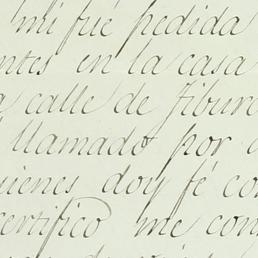 mi fué pedida
ntes en la casa
a calle de Tiburc
llamado por
uienes doy fé co
certifico me con